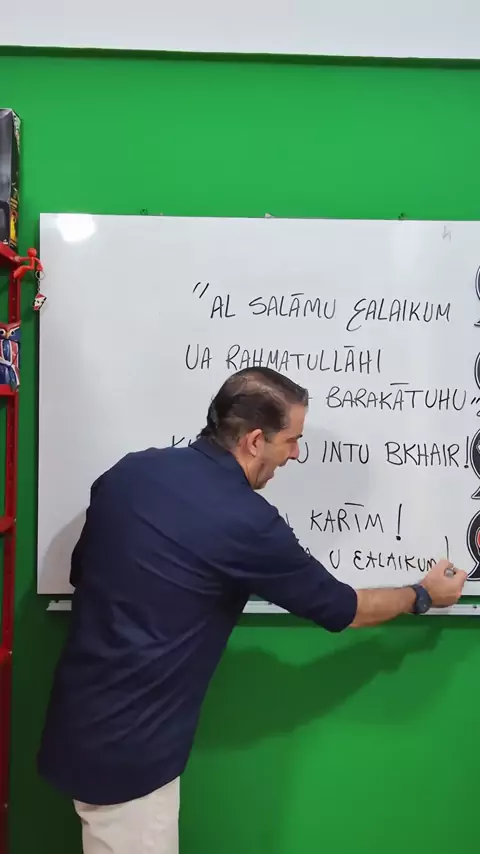 "AL SALĀMU ƐALAIKUM
UA RAHMATULLĀHI
BARAKĀTUHU"
INTU BKHAIR!
KARĪM!
U ƐALAIKUM!